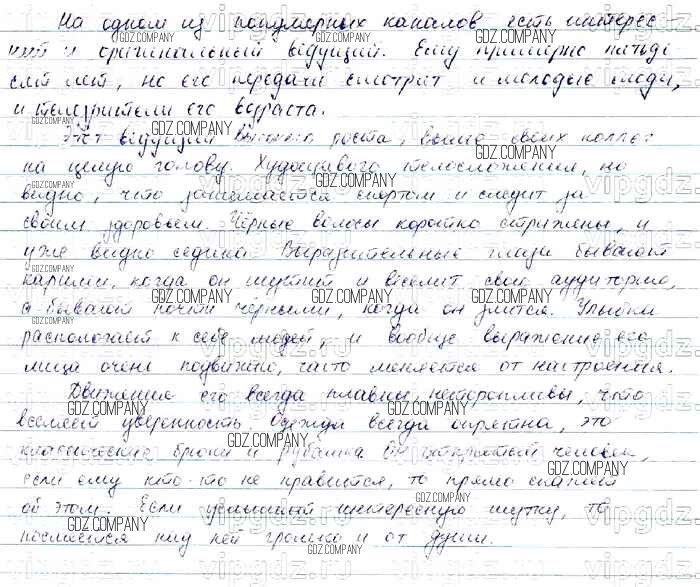 На одном из популярных каналов есть интерес
ный и оригинальный ведущий. Ему примерно пятьде
сят лет, но его передачи смотрят и молодые люди,
и телезрители его возраста.
Этот ведущий высокого роста, выше своих коллег
на целую голову. Худощавого телосложения, но
видно, что занимается спортом и следит за
своим здоровьем. Чёрные волосы коротко стрижены, и
уже видно седина. Выразительные глаза бывают
карими, когда он шутит и веселит свою аудиторию,
а бывают почти чёрными, когда он злится. Улыбка
располагает к себе людей, и вообще выражение его
лица очень подвижно, часто меняется от настроения.
Движения его всегда плавны, неторопливы, что
вселяет уверенность. Одежда всегда опрятна, это
классические брюки и рубашка. Он открытый человек,
если ему кто-то не нравится, то прямо скажет
об этом. Если услышит интересную шутку, то
посмеётся над ней громко и от души.
GDZ.COMPANY
vipgdz.ru